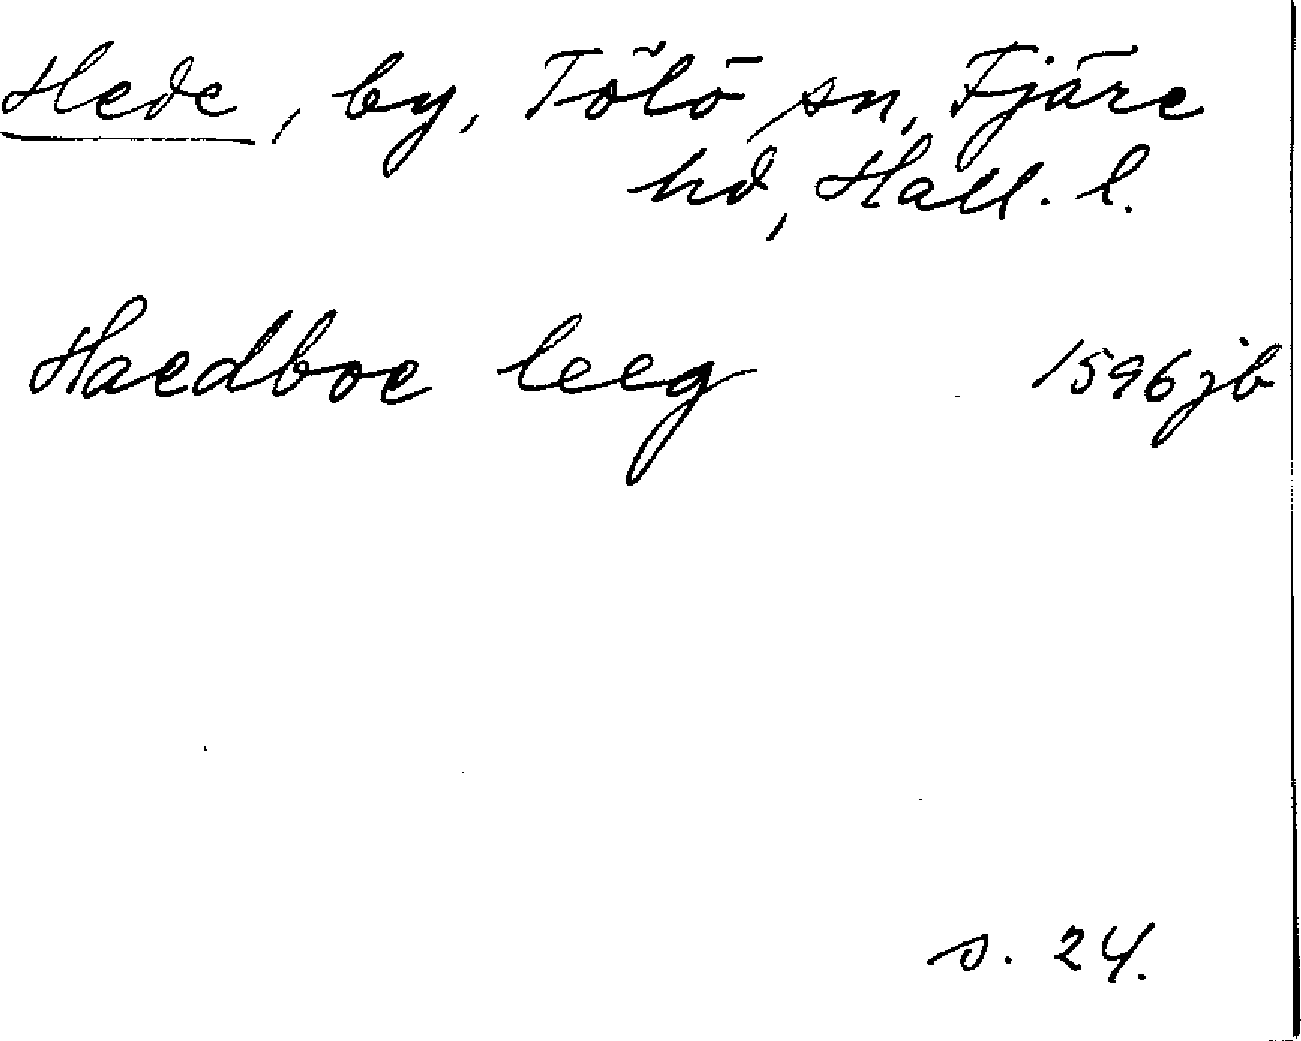 Hede, by, Tölö sn, Fjäre
hd, Hall. l.
Haedboe leeg 1596 jb
s. 24.